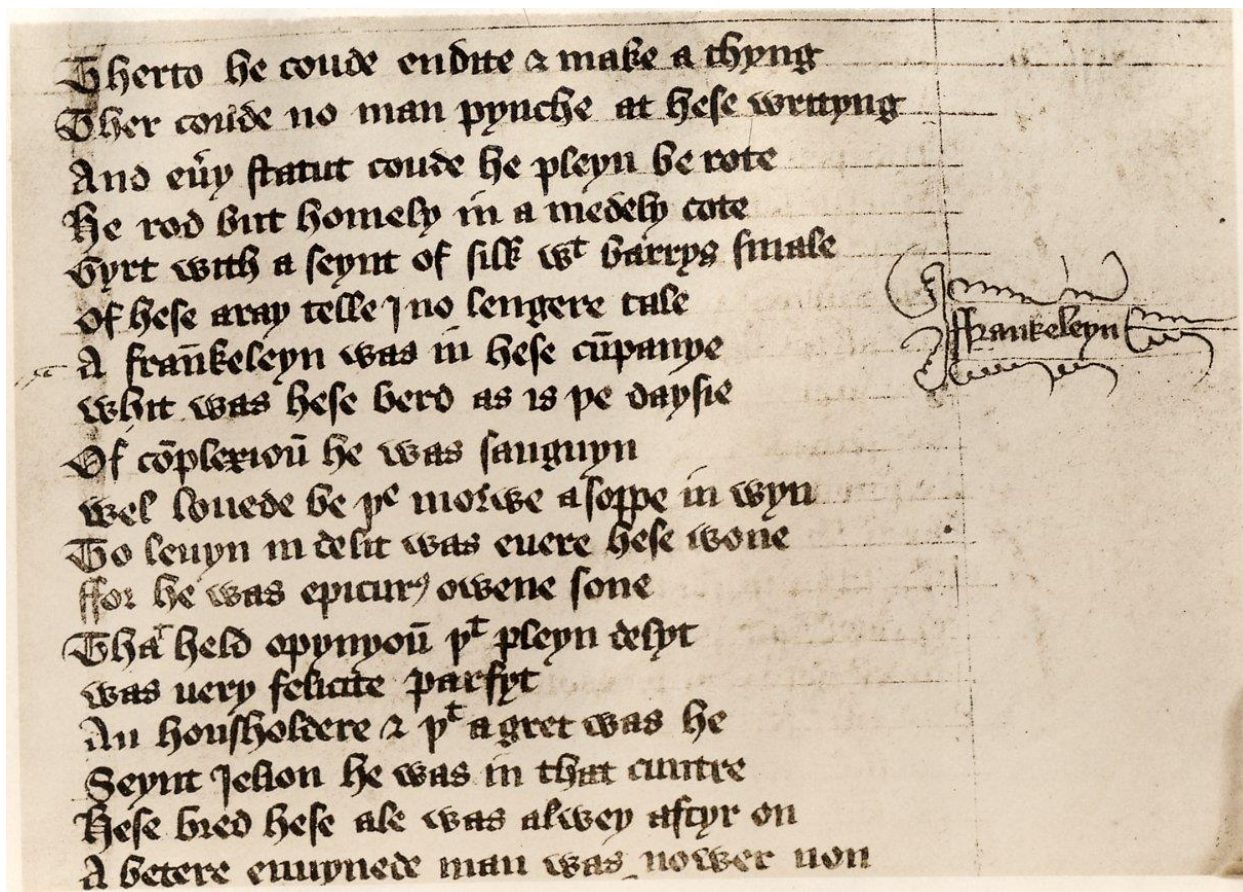 Therto he coude endite & make a thyng
Ther coude no man pynche at hese writyng
And eu̾y statut coude he pleyn be rote
He rod but homely in a medely cote
Gyrt with a seynt of silk wᵗ barrys smale
Of hese aray telle I no lengere tale
A fran̄keleyn was in hese cūpanye
whit was hese berd as is þe daysie
Of cōplexioū he was sanguyn
wel louede be þᵉ morwe a soppe in wyn
To leuyn in delit was euere hese wone
ffor he was epicurꝰ owene sone
Thaᵗ held opynyoū þᵗ pleyn delyt
was uery felicite parfyt
An housholdere & þᵗ a gret was he
Seynt Jelion he was in that cuntre
Hese bred hese ale was alwey aftyr on
A betere enuynede man was nower non
ffrankeleyn